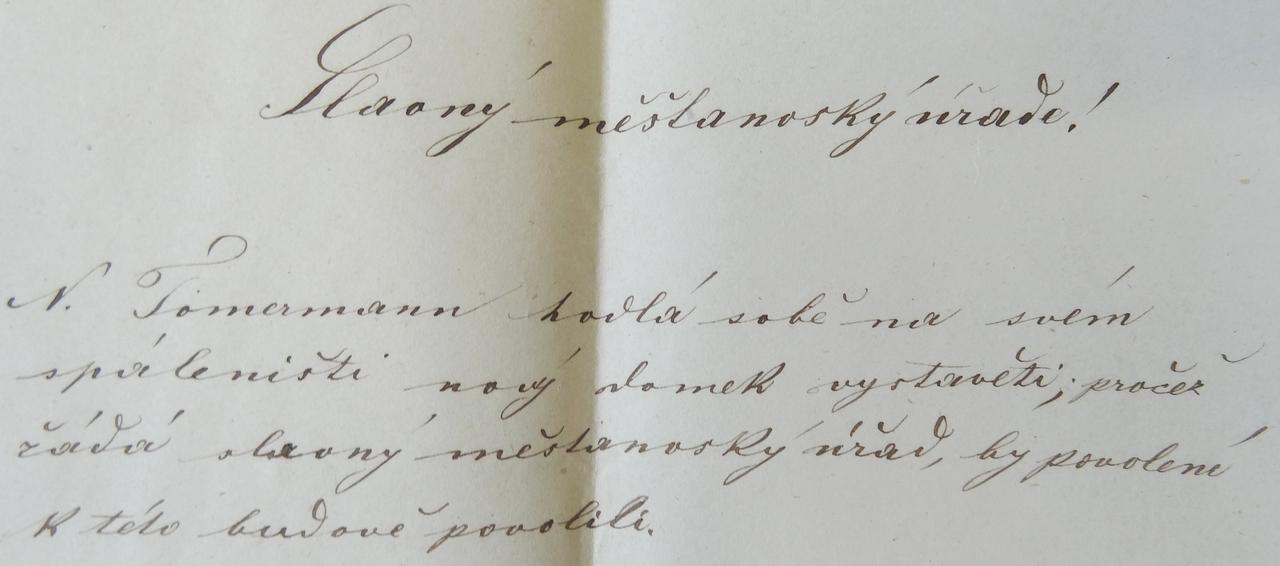 Slavný měšťanoský úřade!
N. Tomermann hodlá sobě na svém
spáleništi nový domek vystavěti; pročež
žádá slavný měšťanoský úřad, by povolení
k této budově povolili.